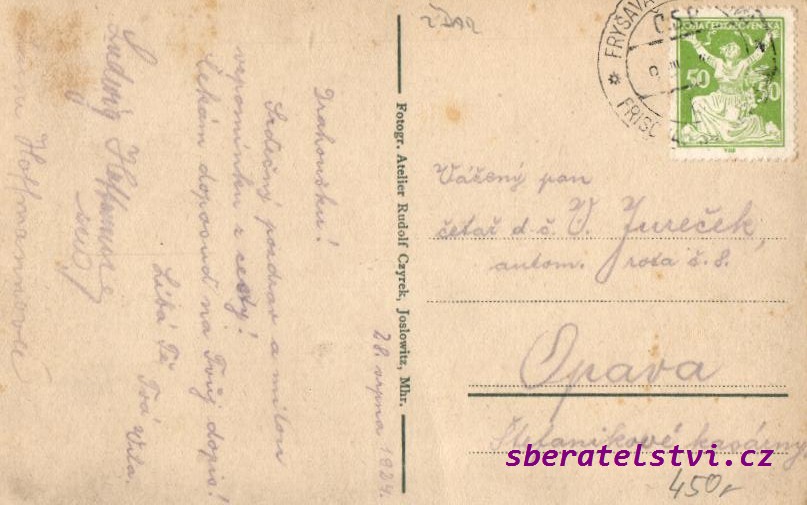 ŽĎÁR
Drahoušku!
Srdečný pozdrav a milou
vzpomínku z cesty!
Čekám doposud na Tvůj dopis!
Líbá Tě Tvá Věla.
Ludwig Hoffmann
Hoffmannová
28. srpna 1924.
Fotogr. Atelier Rudolf Czyrek, Joslowitz, Mhr.
FRYŠAVA
FRISCHAU
Č.S.P.
POŠTA ČESKOSLOVENSKÁ
50 50
Vážený pan
četař d. č. V. Jureček,
autom. rota č. 8.
Opava
Štefanikové kasárny
sberatelstvi.cz
450,-